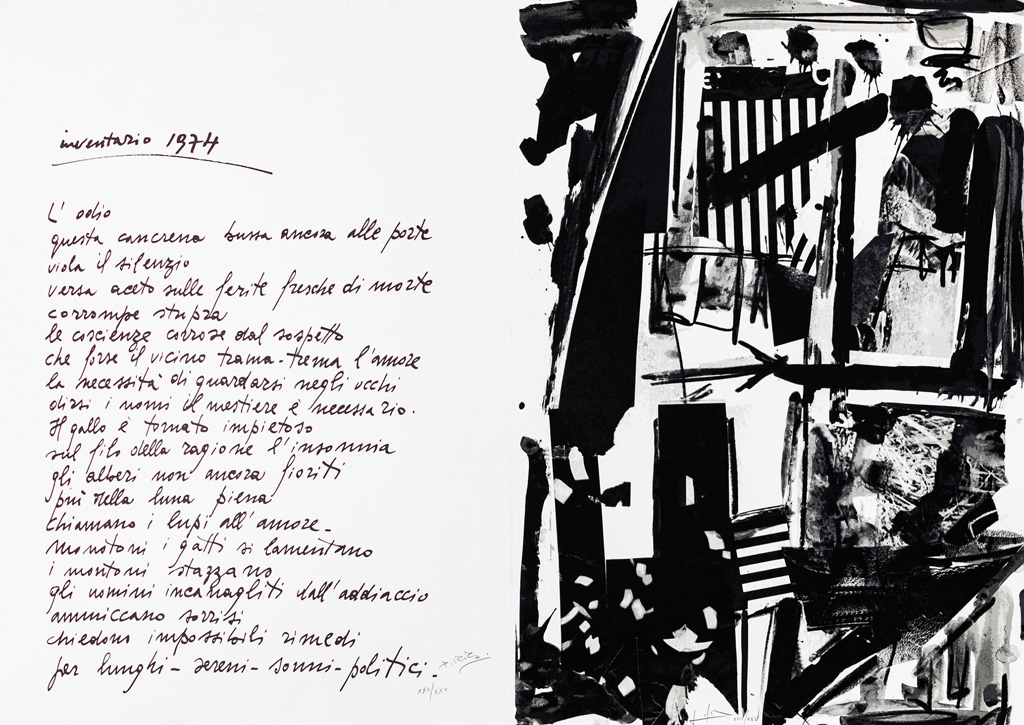 inventario 1974
L'odio
questa cancrena bussa ancora alle porte
viola il silenzio
versa aceto sulle ferite fresche di morte
corrompe stupra
le coscienze corrose dal sospetto
che forse il vicino trama-trema l'amore
la necessità di guardarsi negli occhi
dirsi i nomi il mestiere è necessario.
Il gallo è tornato impietoso
sul filo della ragione l'insonnia
gli alberi non ancora fioriti
più della luna piena
chiamano i lupi all'amore-
Monotoni i gatti si lamentano
i montoni stazzano
gli uomini incanagliti dall'addiaccio
ammiccano sorrisi
chiedono impossibili rimedi
per lunghi-sereni-sonni-politici.
XXV/XXV
XXV/XXV